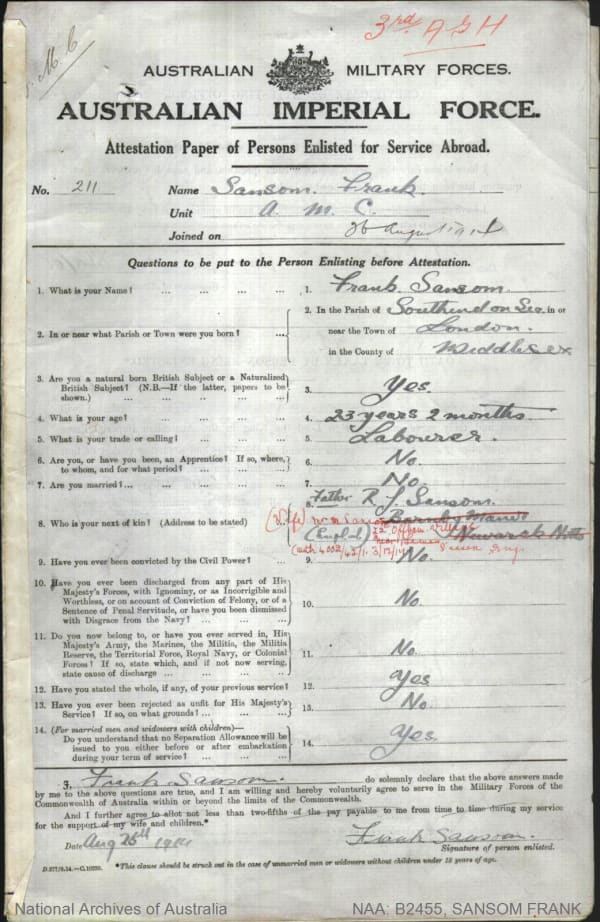 3rd AGH
AUSTRALIAN MILITARY FORCES.
AUSTRALIAN IMPERIAL FORCE.
Attestation Paper of Persons Enlisted for Service Abroad.
No. 211 Name Sansom Frank.
Unit A. M. C.
Joined on 26 August 1914
Questions to be put to the Person Enlisting before Attestation.
1. What is your Name? ... ... ... ... 1. Frank Sansom.
2. In or near what Parish or Town were you born? ... 2. In the Parish of Southend on Sea in or
near the Town of London.
in the County of Middlesex
3. Are you a natural born British Subject or a Naturalized
British Subject? (N.B.—If the latter, papers to be
shown.) ... ... ... ... ... 3. Yes.
4. What is your age? ... ... ... ... 4. 23 years 2 months
5. What is your trade or calling? ... ... ... 5. Labourer.
6. Are you, or have you been, an Apprentice? If so, where,
to whom, and for what period? ... ... ... 6. No.
7. Are you married? ... ... ... ... 7. No.
8. Who is your next of kin? (Address to be stated) ... 8. Father R. J. Sansom.
(Wife) Mrs M Sansom Barnby Manor
(England) Offham Village Newark Notts
9. Have you ever been convicted by the Civil Power? ... 9. No.
10. Have you ever been discharged from any part of His
Majesty's Forces, with Ignominy, or as Incorrigible and
Worthless, or on account of Conviction of Felony, or of a
Sentence of Penal Servitude, or have you been dismissed
with Disgrace from the Navy? ... ... ... 10. No.
11. Do you now belong to, or have you ever served in, His
Majesty's Army, the Marines, the Militia, the Militia
Reserve, the Territorial Force, Royal Navy, or Colonial
Forces? If so, state which, and if not now serving,
state cause of discharge ... ... ... ... 11. No.
12. Have you stated the whole, if any, of your previous service? 12. Yes
13. Have you ever been rejected as unfit for His Majesty's
Service? If so, on what grounds? ... ... ... 13. No.
14. (For married men and widowers with children)—
Do you understand that no Separation Allowance will be
issued to you either before or after embarkation
during your term of service? ... ... ... 14. Yes.
I, Frank Sansom. do solemnly declare that the above answers made
by me to the above questions are true, and I am willing and hereby voluntarily agree to serve in the Military Forces of the
Commonwealth of Australia within or beyond the limits of the Commonwealth.
And I further agree to allot not less than two-fifths of the pay payable to me from time to time during my service
for the support of my wife and children.*
Date Aug 25th 1914 Frank Sansom.
Signature of person enlisted.
D.277/8.14.—C.10270. *This clause should be struck out in the case of unmarried men or widowers without children under 18 years of age.
National Archives of Australia NAA: B2455, SANSOM FRANK